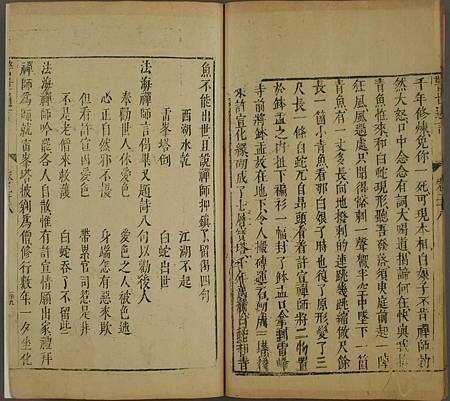 警世通言
卷二十八
千年修煉免你一死可現本相白娘子不肯禪師勃
然大怒口中念念有詞大喝道揭諦何在快與我擒
青魚怪來和白蛇現形聽吾發落須臾庭前起一陣
狂風風過處只聞得豁剌一聲響半空中墜下一箇
青魚有一丈多長向地撥剌的連跳幾跳縮做尺餘
長一箇小青魚看那白娘子時也復了原形變了三
尺長一條白蛇兀自昂頭看着許宣禪師將二物置
於鉢盂之內扯下褊衫一幅封了鉢盂口拿到雷峰
寺前將鉢盂放在地下令人搬磚運石砌成一塔後
來許宣化緣砌成了七層寶塔千年萬載白蛇和青
魚不能出世且說禪師押鎮了留偈四句
西湖水乾 江湖不起
雷峯塔倒 白蛇出世
法海禪師言偈畢又題詩八句以勸後人
奉勸世人休愛色 愛色之人被色迷
心正自然邪不擾 身端怎有惡來欺
但看許宣因愛色 帶累官司惹是非
不是老僧來救護 白蛇吞了不留些
法海禪師吟罷各人自散惟有許宣情願出家禮拜
禪師爲師就雷峯塔披剃爲僧修行數年一夕坐化
警世通言
卷二十八